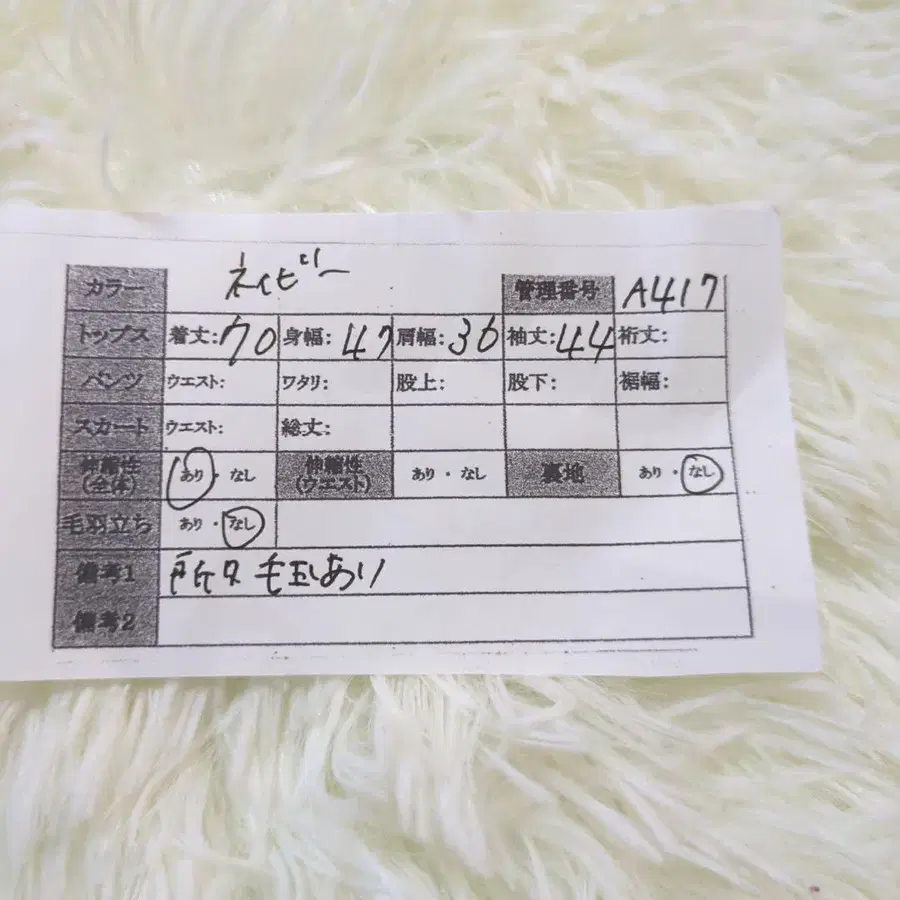 カラー ネイビー 管理番号 A417
トップス 着丈:70 身幅:47 肩幅:36 袖丈:44 裄丈:
パンツ ウエスト: ワタリ: 股上: 股下: 裾幅:
スカート ウエスト: 総丈:
伸縮性(全体) あり・なし 伸縮性(ウエスト) あり・なし 裏地 あり・なし
毛羽立ち あり・なし
備考1 所々毛玉あり
備考2